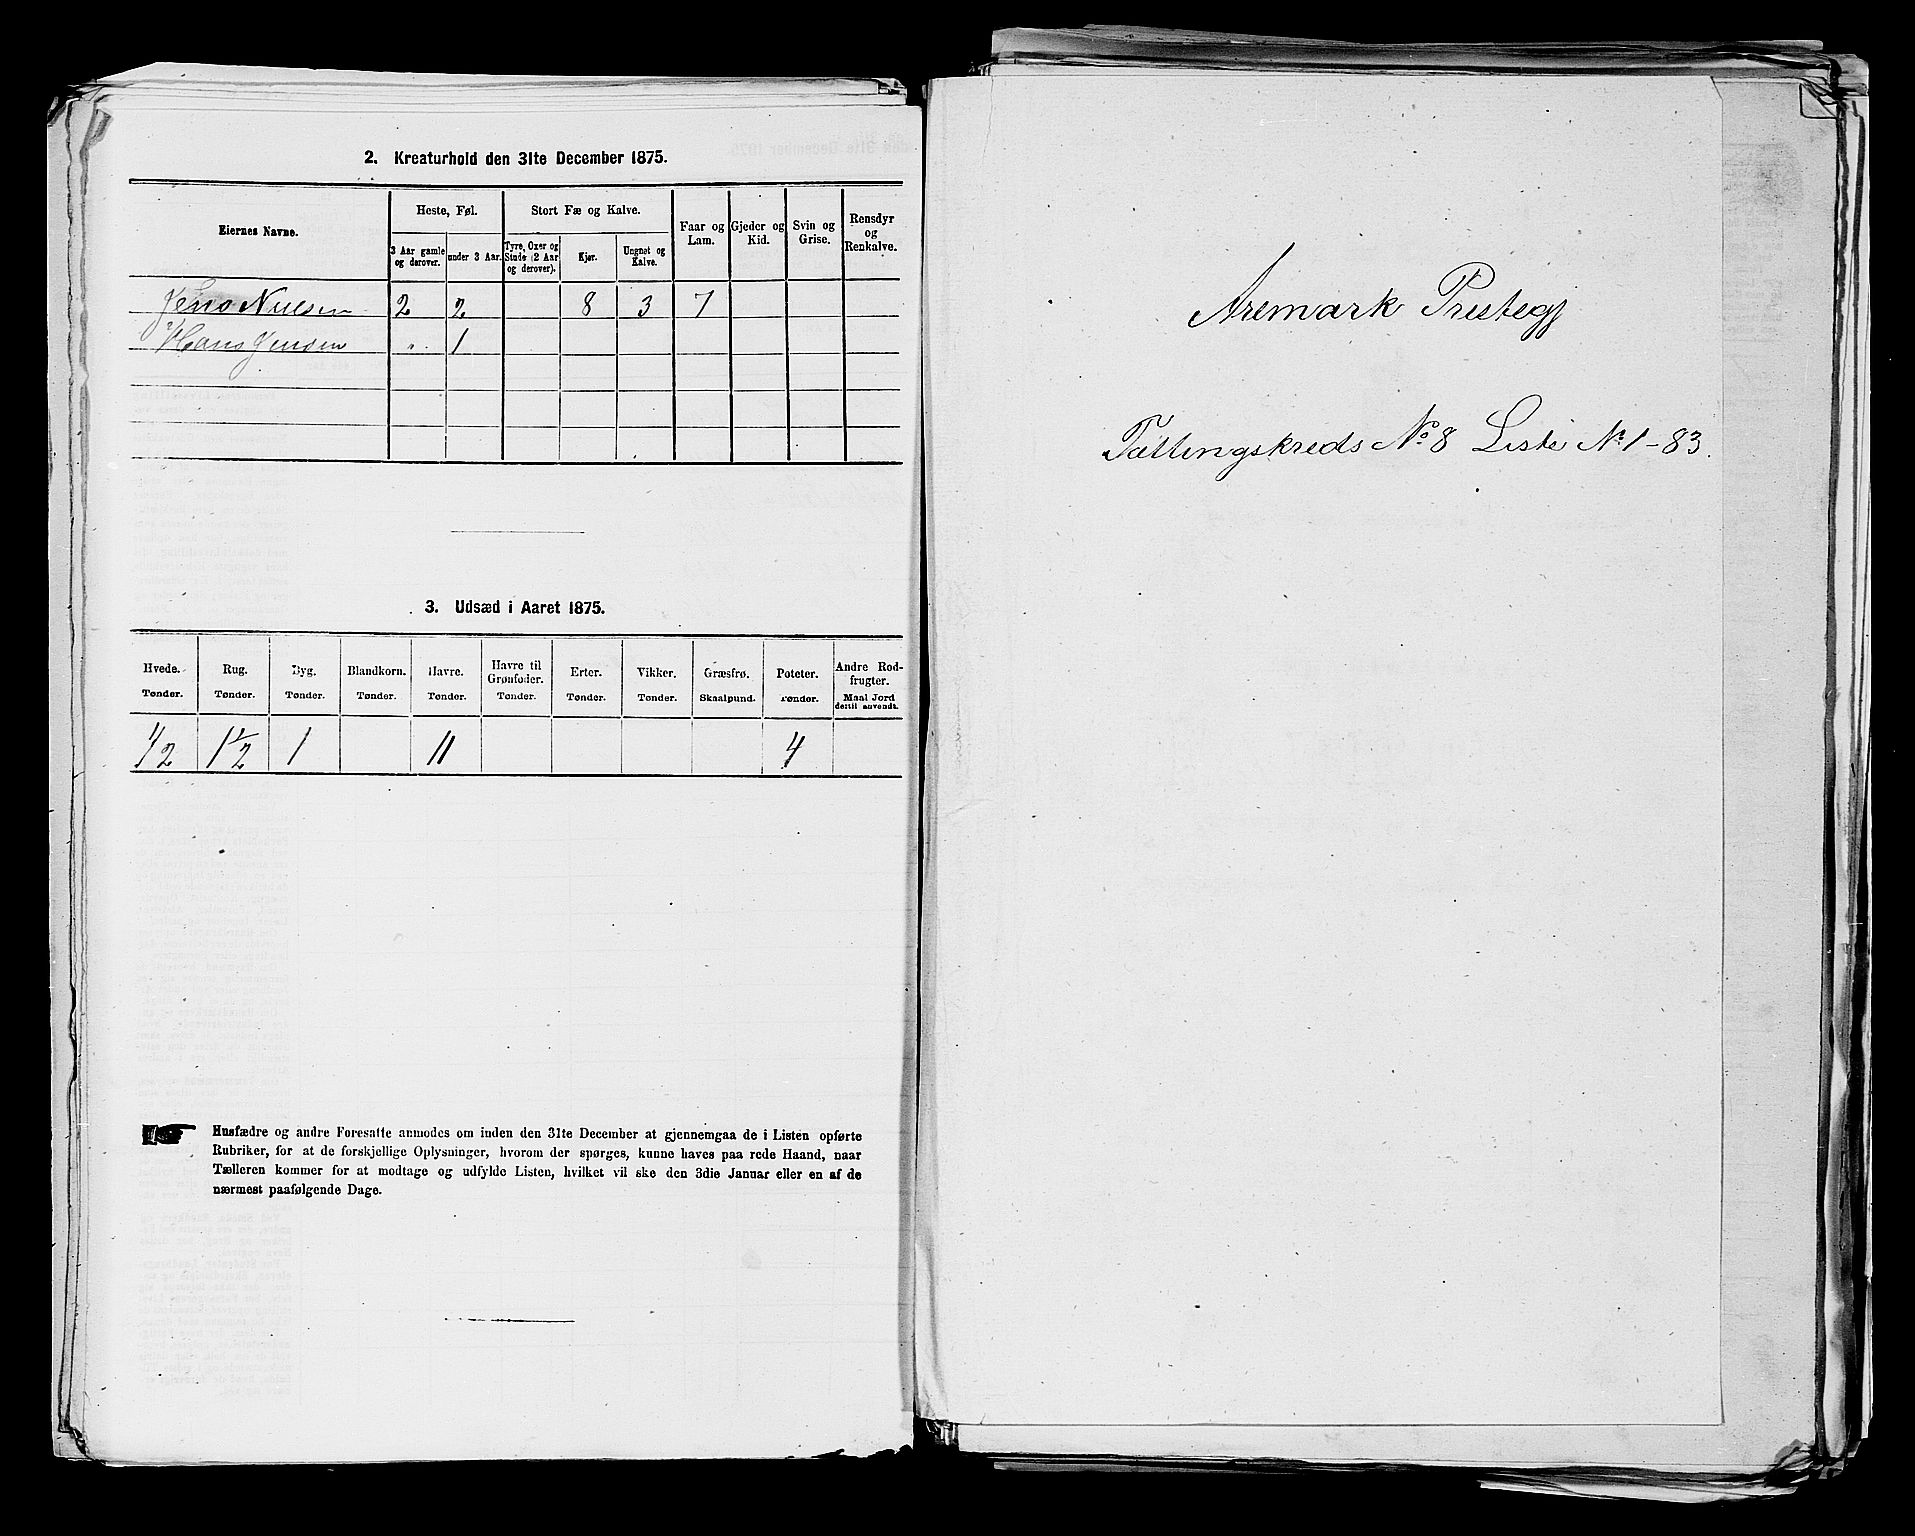 2. Kreaturhold den 31te December 1875.
Eiernes Navne.
Heste, Føl.
3 Aar gamle og derover.
under 3 Aar.
Stort Fæ og Kalve.
Tyre, Oxer og Stude (2 Aar og derover).
Kjør.
Ungnøt og Kalve.
Faar og Lam.
Gjeder og Kid.
Svin og Grise.
Rensdyr og Renkalve.
Jens Nielsen 2 2 8 3 7
Hans Jensen " 1
3. Udsæd i Aaret 1875.
Hvede. Rug. Byg. Blandkorn. Havre. Havre til Grønfoder. Erter. Vikker. Græsfrø. Poteter. Andre Rodfrugter.
Tønder. Tønder. Tønder. Tønder. Tønder. Tønder. Tønder. Tønder. Skaalpund. Tønder. Maal Jord dertil anvendt.
1/2 1 1/2 1 11 4
Husfædre og andre Foresatte anmodes om inden den 31te December at gjennemgaa de i Listen opførte
Rubriker, for at de forskjellige Oplysninger, hvorom der spørges, kunne haves paa rede Haand, naar
Tælleren kommer for at modtage og udfylde Listen, hvilket vil ske den 3die Januar eller en af de
nærmest paafølgende Dage.
Aremark Prestegj
Tællingskreds No 8 Liste No 1-83.